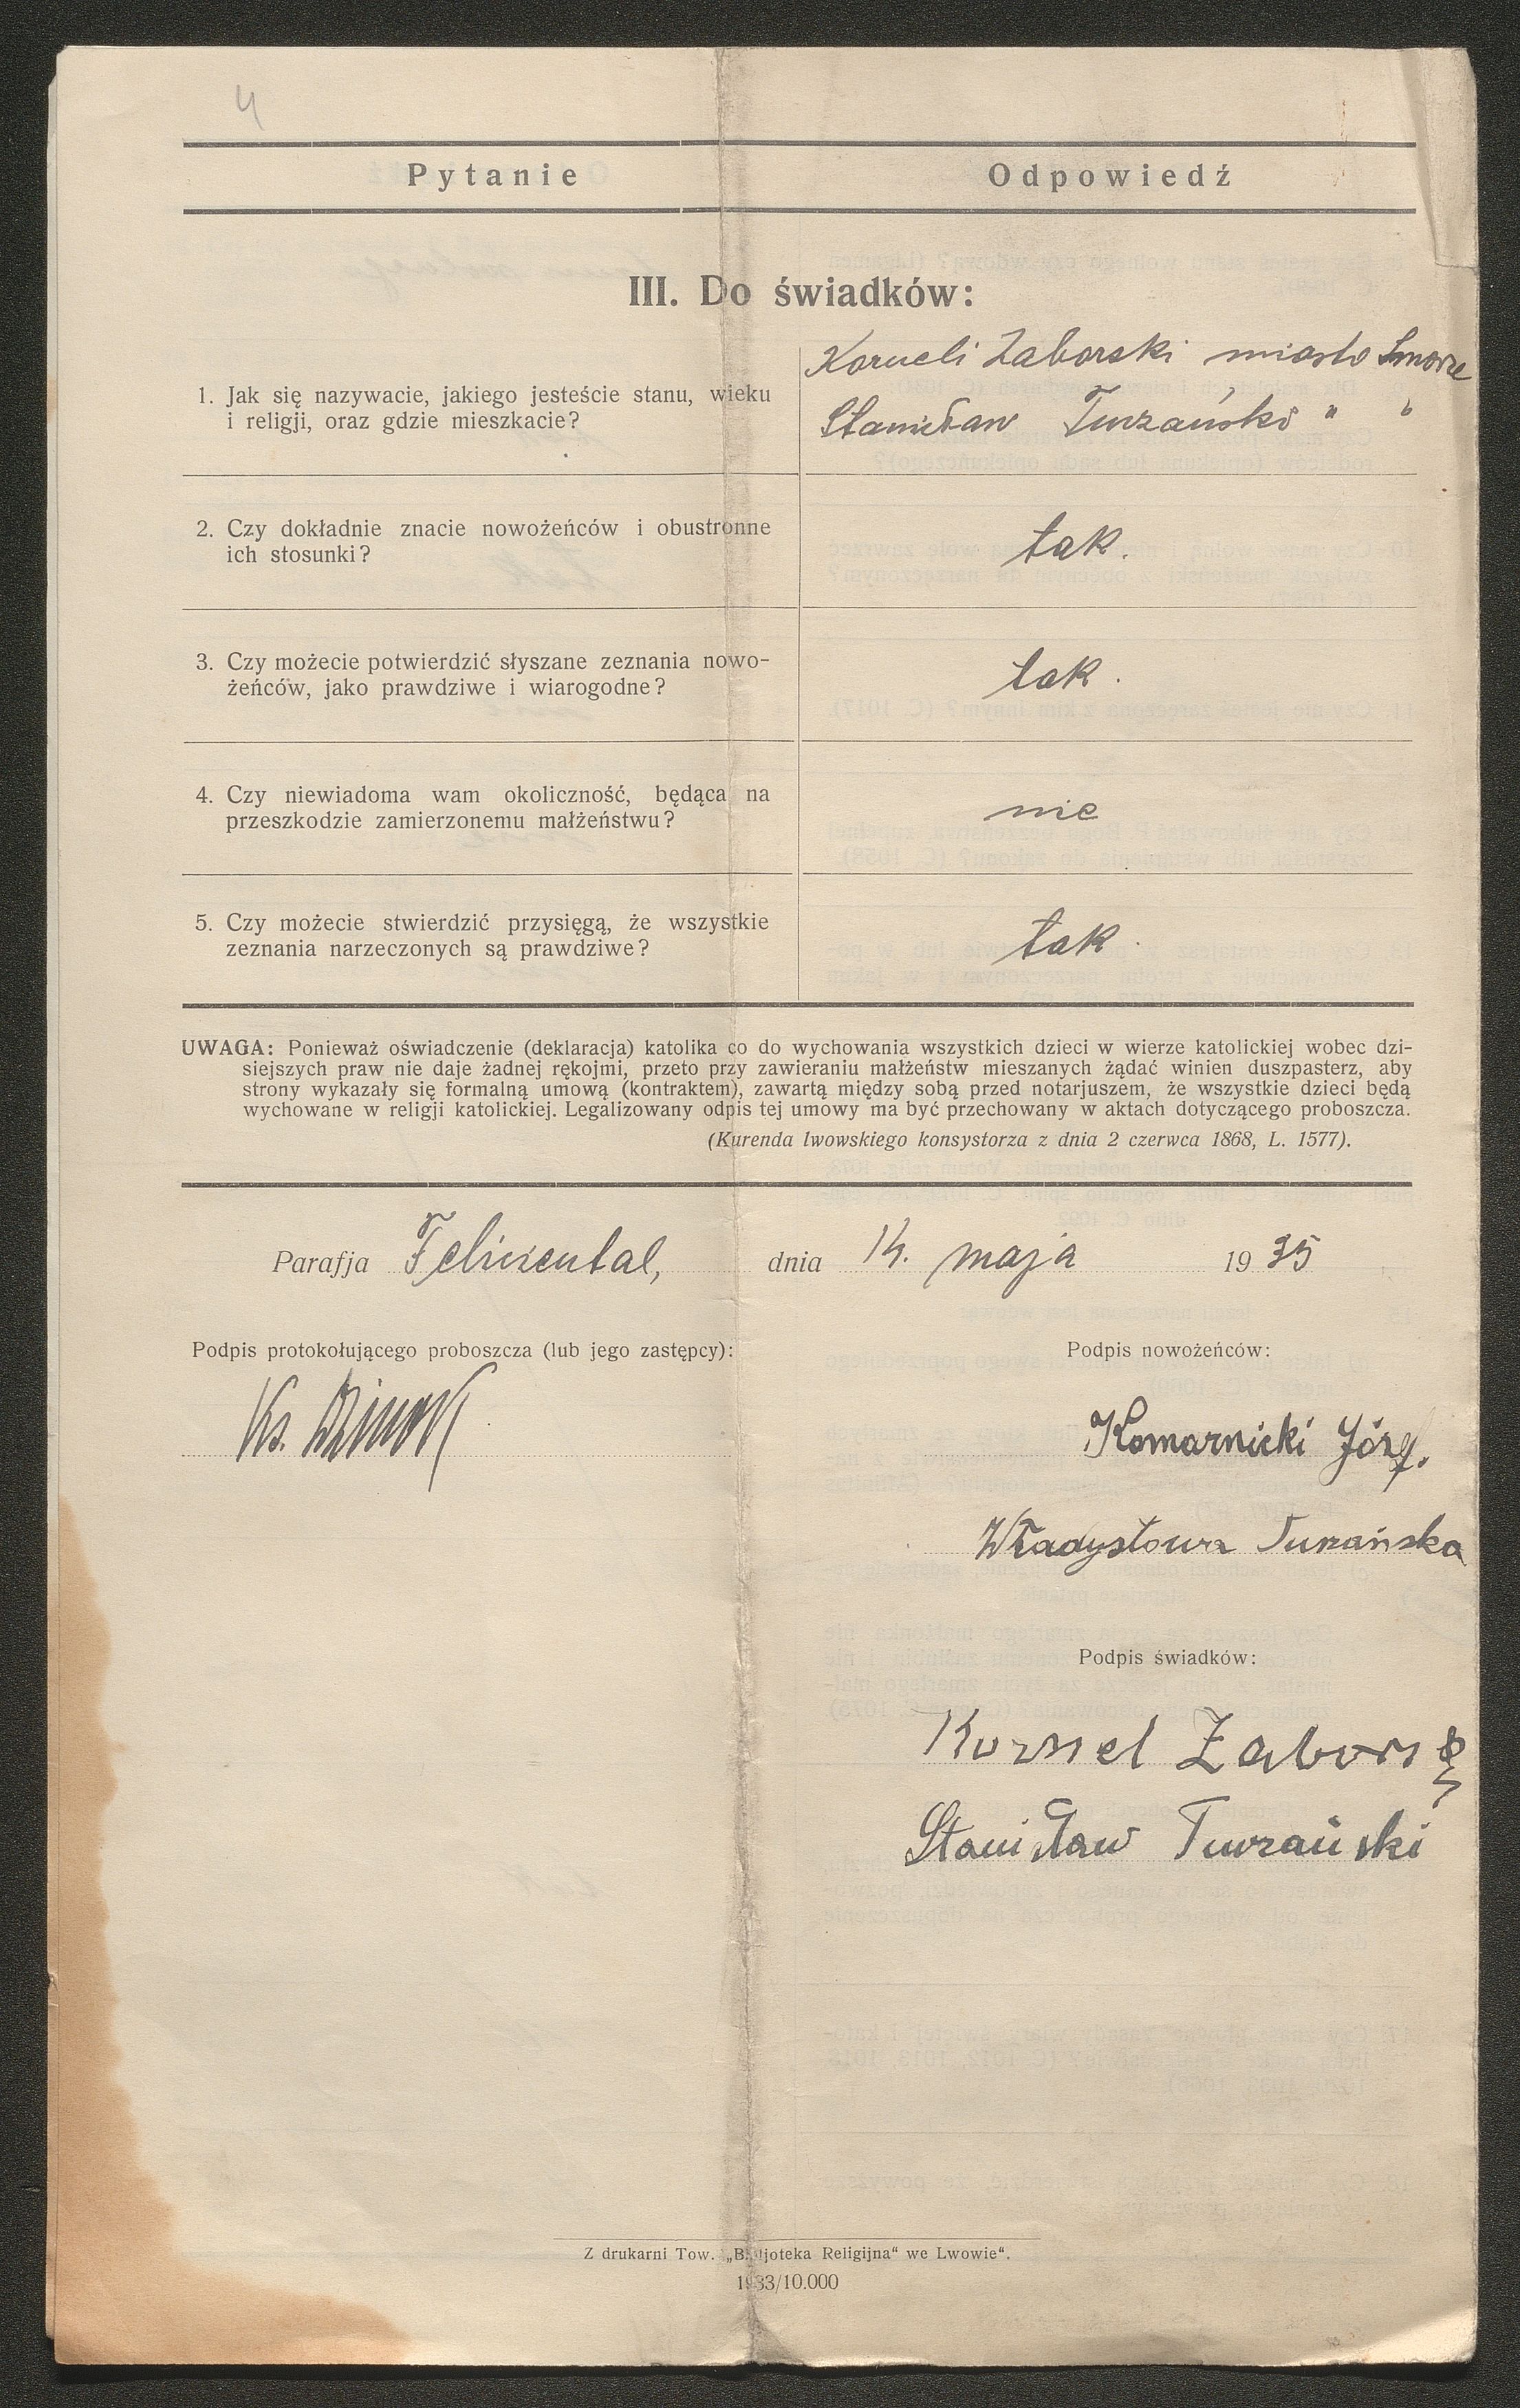 4
Pytanie Odpowiedź
III. Do świadków:
Korneli Zaborski miasto Smorze
1. Jak się nazywacie, jakiego jesteście stanu, wieku
i religji, oraz gdzie mieszkacie?
Stanisław Turzański " "
2. Czy dokładnie znacie nowożeńców i obustronne
ich stosunki?
tak.
3. Czy możecie potwierdzić słyszane zeznania nowo-
żeńców, jako prawdziwe i wiarogodne?
tak.
4. Czy niewiadoma wam okoliczność, będąca na
przeszkodzie zamierzonemu małżeństwu?
nie
5. Czy możecie stwierdzić przysięgą, że wszystkie
zeznania narzeczonych są prawdziwe?
tak.
UWAGA: Ponieważ oświadczenie (deklaracja) katolika co do wychowania wszystkich dzieci w wierze katolickiej wobec dzi-
siejszych praw nie daje żadnej rękojmi, przeto przy zawieraniu małżeństw mieszanych żądać winien duszpasterz, aby
strony wykazały się formalną umową (kontraktem), zawartą między sobą przed notarjuszem, że wszystkie dzieci będą
wychowane w religji katolickiej. Legalizowany odpis tej umowy ma być przechowany w aktach dotyczącego proboszcza.
(Kurenda lwowskiego konsystorza z dnia 2 czerwca 1868, L. 1577).
Parafja Felizental, dnia 14. maja 1935
Podpis protokołującego proboszcza (lub jego zastępcy): Podpis nowożeńców:
Ks.
Komarnicki Józef.
Władysława Turzańska
Podpis świadków:
Kornel Zaborski
Stanisław Turzański
Z drukarni Tow. „Bibljoteka Religijna“ we Lwowie“.
1933/10.000